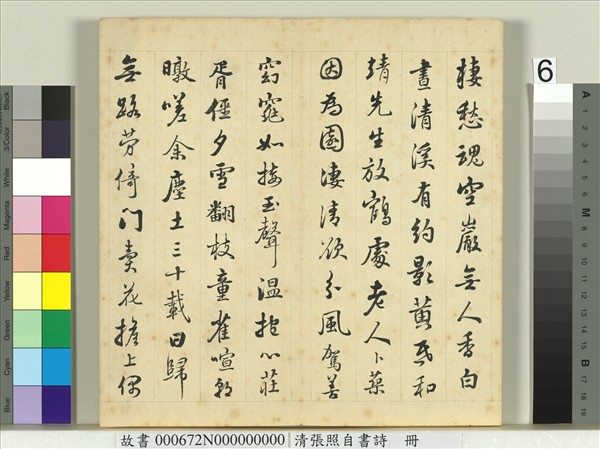 棲愁魂空巖無人香自
晝清溪有約影黃昏和
靖先生放鶴處老人卜築
因為園淒清欲分風駕善
窈窕如接玉聲溫抱心莊
胥徑夕雪翻枝童雀喧朝
暾嗟余塵土三十載田歸
無路勞倚門賣花擔上偶
6
故書 000672N000000000 清張照自書詩 冊
Black
3/Color
White
Magenta
Red
Yellow
Green
Cyan
Blue
A
1
2
3
4
5
6
M
8
9
10
11
12
13
14
15
B
17
18
19